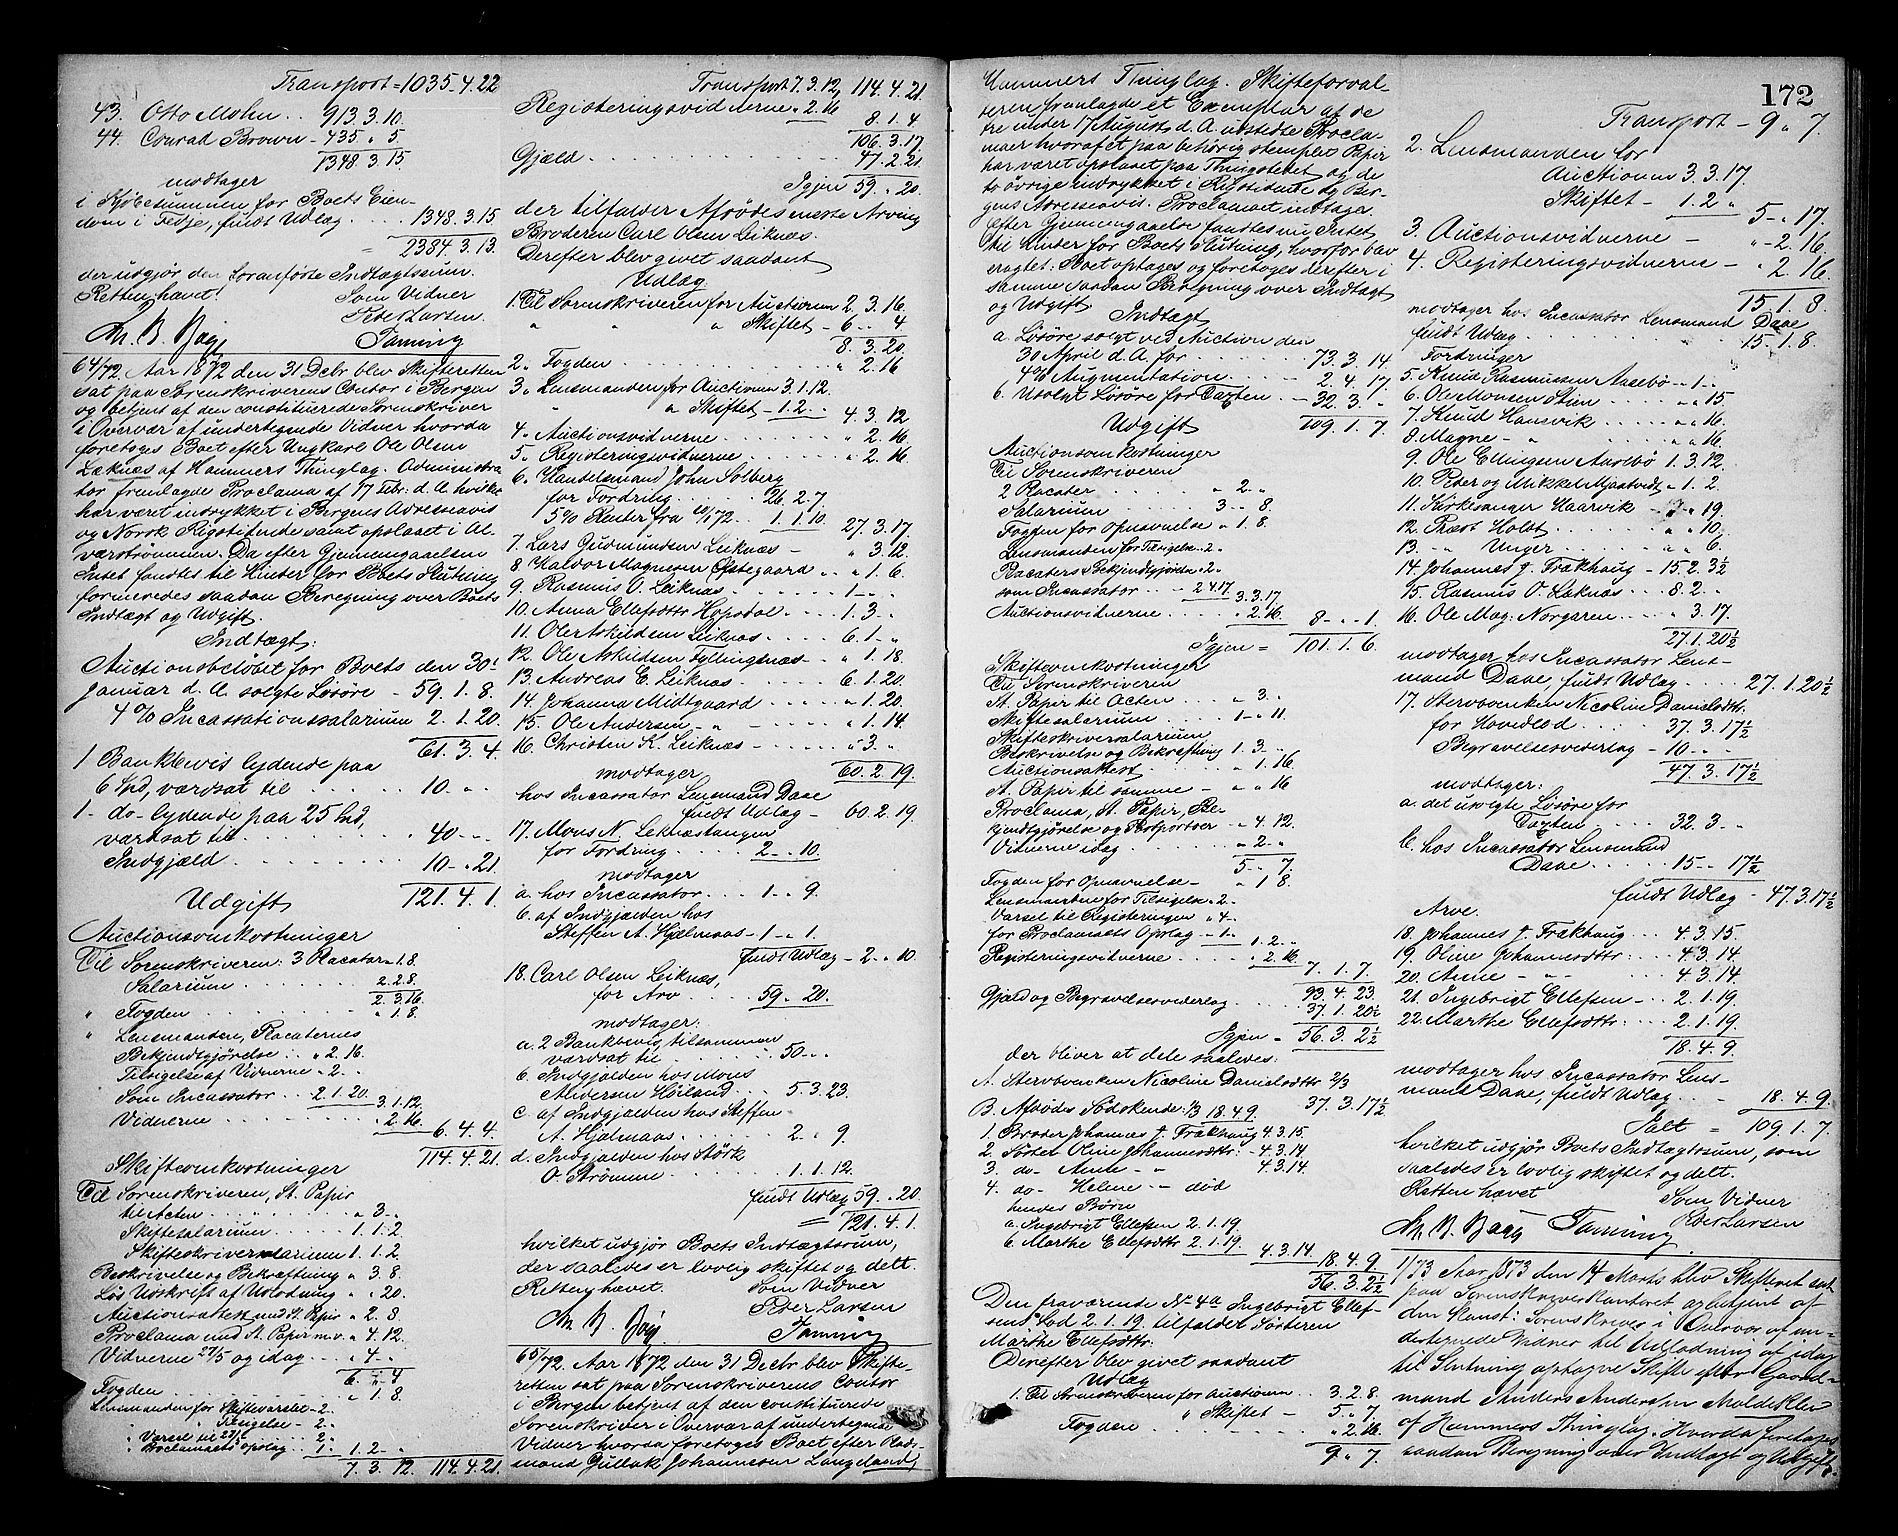 Transport = 1035 - 4. 22
43. Otto Mohn . . 913. 3. 10.
44. Conrad Brown - 435 " 5
1348. 3. 15
modtager
i Kjöbesummen for Boets Eien-
dom i Fedje, fuldt Udlæg . . . 1348. 3. 15
= 2384. 3. 13.
der udgjør den foranførte Indtægtssum.
Retten hævet! Som Vidner
Peder Larsen.
Tanning
64/72. Aar 1872 den 31 Debr blev Skifteretten
sat paa Sorenskriverens Contor i Bergen
og betjent af den constituerede Sorenskriver
i Overvær af undertegnede Vidner hvorda
foretoges Boet efter Ungkarl Ole Olsen
Leknæs af Hammers Thinglag. Administra-
tor fremlagde Proclama af 17 Febr. d. A. hvilke
har været indrykket i Bergens Adresseavis
og Norsk Rigstidende samt opslaaet i Al-
værstrømmen. Da efter Gjennemgaaelsen
Intet fandtes til Hinder for Boets Slutning
formeredes saadan Beregning over Boets
Indtægt og Udgift.
Indtægt:
Auctionsbeløbet for Boets den 30te
Januar d. A. solgte Løsøre - 59. 1. 8.
4 % Incassationssalarium 2. 1. 20.
61. 3. 4.
1 Bankbevis lydende paa
6 Spd, værdsat til . . . . . 10. " "
1 - do - lydende paa 25 Spd,
værdsat til . . . . . . 40 - "
Indgjæld . . . . . . . 10 - " 21.
121. 4. 1.
Udgift
Auctionsomkostninger
Til Sorenskriveren: 3 Placater " 1. 8.
Salarium . . . . . 2. 2. 8.
2. 3. 16.
" Fogden . . . . . . . . " 1. 8.
" Lensmanden, Placaternes
Bekjendtgjørelse . . . " 2. 16.
Tilsigelse af Vidnerne " 2. "
Som Incassator . . 2. 1. 20. 3. 1. 12.
Vidnerne . . . . . . . " 2. 16. 6. 4. 4.
114. 4. 21.
Skifteomkostninger
Til Sorenskriveren, St. Papir
til Acten . . . . . . . " 3 - "
Skiftesalarium . . . . 1. 1. 2.
Skifteskriversalarium 1. 1. 2.
Beskrivelse og Bekræftning " 3. 8.
Løs Udskrift af Udlodning " " 20.
Auctionsattest med St. Papir " 2. 8.
Proclama med St. Papir m. v. " 4. 12.
Vidnerne 27/5 og idag . . . " 4. "
6. " 4
Fogden . . . . . . . . . . " 1. 8.
Lensmanden for Skiftevarslet - 2.
" " Tilsigelse - 2.
" Varsel til 27/5 . . . . . 2.
" Proclamaets Opslag . . 1. 1. 2. "
7. 3. 12. 114. 4. 21.
Transport 7. 3. 12, 114. 4. 21.
Registeringsvidnerne " 2. 16
8. 1. 4
106. 3. 17.
Gjæld . . . . . . . . . . . 47. 2. 21
Igjen 59. " 20.
der tilfalder Afdødes eneste Arving
Broderen Carl Olsen Leiknæs.
Derefter blev givet saadant
Udlæg
1. Til Sorenskriveren for Auctionen 2. 3. 16.
" " " Skiftet - 6 " 4
8. 3. 20.
2. Fogden . . . . . . . . " 2. 16
3. Lensmanden for Auctionen 3. 1. 12.
" " Skiftet - 1. 2. " 4. 3. 12
4. Auctionsvidnerne . . . . . " 2. 16.
5. Registeringsvidnerne . . . . " 2. 16.
6. Handelsmand John Solberg
for Fordring . . . . 26. 2. 7
5% Renter fra . . . 1. 1. 10. 27. 3. 17.
7. Lars Gudmundsen Leiknæs - " 3. 12.
8. Haldor Magnesen Østegaard . . " 1. 6.
9. Rasmus O. Leiknæs . . . . 1 - " "
10. Anna Ellefsdttr Hopsdal . . . 1. 3. "
11. Ole Askildsen Leiknæs . . . . 6. 1 - "
12. Ole Askildsen Fyllingsnæs - " 1. 18.
13. Andreas E. Leiknæs . . . . 6. 1. 20.
14. Johanna Midtgaard . . . . " 1. 20.
15. Ole Andersen - " - . . . " 1. 14.
16. Christen K. Leiknæs . . . . " 3 - "
60. 2. 19.
modtager
hos Incassator Lensmand Daae
fuldt Udlæg - 60. 2. 19.
17. Mons N. Leknæstangen
for Fordring . . . . 2 - " 10.
modtager
a. hos Incassator . . . 1 - " 9.
b. af Indgjælden hos
Steffen A. Hjælmaas - 1 - " 1.
fuldt Udlæg - 2. " 10.
18. Carl Olsen Leiknæs,
for Arv . . . . . 59. " 20.
modtager:
a. 2 Bankbevis tilsammen
værdsat til . . . . . 50 - "
b. Indgjælden hos Mons
Andersen Høiland . . . 5. 3. 23.
c. af Indgjælden hos Steffen
A. Hjælmaas . . . . . 2. " 9.
d. Indgjælden hos Størk
O. Strømme . . . . . 1. 1. 12.
fuldt Udlæg 59. " 20
= 121. 4. 1.
hvilket udgjør Boets Indtægtssum,
der saaledes er lovlig skiftet og delt.
Retten hævet. Som Vidner
Peder Larsen
Tanning
65/72. Aar 1872 den 31 Decbr blev Skifte-
retten sat paa Sorenskriverens Contor
i Bergen betjent af den constituerede
Sorenskriver i Overvær af undertegnede
Vidner hvorda foretoges Boet efter Gaard-
mand Gullak Johannesen Langeland,
172
Hammers Thinglag. Skifteforval-
teren fremlagde et Exemplar af de
tre under 17 August d. A. udstedte Procla-
maer hvoraf et paa behørig stemplet Papir
har været opslaaet paa Thingstedet og de
to øvrige indrykket i Rigstidende og Ber-
gens Adresseavis. Proclamaet indtages.
Efter Gjennemgaaelse fandtes nu Intet
til Hinder for Boets Slutning, hvorfor bev
eragtet: Boet optages og foretoges derefter i
samme saadan Beregning over Indtægt
og Udgift
Indtægt
a. Løsøre solgt ved Auction den
30 April d. A. for . . . . . . . 73. 3. 14
4% Augmentation . . . . . 2. 4. 17
b. Usolgt Løsøre for Taxten . . - 32. 3. "
109. 1. 7.
Udgift
Auctionsomkostninger
Til Sorenskriveren
2 Placater . . . . . . . " 2 - "
Salarium . . . . . . . 3 - " 8.
Fogden for Opnævnelse " 1. 8.
Lensmanden for Tilsigelse " 2 "
Placaters Bekjendtgjørelse " 2 "
som Incassator . . . 2 4 17 3. 3. 17
Auctionsvidnerne . . . . " 2. 16. 8 - " 1.
Igjen = 101. 1. 6.
Skifteomkostninger
Til Sorenskriveren
St. Papir til Acten . . . . " 3. "
Skiftesalarium . . . . . 1 - " 11.
Skifteskriversalarium,
Beskrivelse og Bekræftning 1. 3. "
Auctionsattest . . . . . . " 1. 16
St. Papir til samme - . . " " 16
Proclama, St. Papir, Be-
kjendtgjørelse og Postportoer . " 4. 12.
Vidnerne idag . . . . . . " 2 - "
5 - " 7.
Fogden for Opnævnelse - " 1 8.
Lensmanden for Tilsigelse " 2 -
Varsel til Registeringen " 4 -
for Proclamaets Opslag - " 1 - " 1. 2. "
Registeringsvidnerne . . . . " 2. 16
7. 1. 7.
93. 4. 23.
Gjæld og Begravelsesvederlag . . . . 37. 1. 20½
Igjen = 56. 3. 2½
der bliver at dele saaledes:
A. Stervboenken Nicoline Danielsdttr 2/3
37. 3. 17½
B. Afdødes Södskende: 1/3 18. 4. 9.
1. Broder Johannes J. Frækhaug 4. 3. 15.
2. Søster Oline Johannesdttr: - 4. 3. 14
3. do - Anne - " 4. 3. 14.
4. do - Helene - - død
hendes Børn
a. Ingebrigt Ellefsen 2. 1. 19.
b. Marthe Ellefsdttr 2. 1. 19. 4. 3. 14. 18. 4. 9
56. 3. 2½
Den fraværende No 4a Ingebrigt Ellef-
sens Lod 2. 1. 19. tilfalder Søsteren
Marthe Ellefsdttr:
Derefter blev givet saadant
Udlæg
1. Til Sorenskriveren for Auctionen . . 3. 2. 8.
" Skiftet - 5. " 7
Fogden . . . . . . . . . . " 2. 16
9 " 7.
Transport - 9 " 7.
2. Lensmanden for
Auctionen 3. 3. 17.
Skiftet - 1. 2 " 5 - " 17.
3. Auctionsvidnerne - " - 2. 16
4. Registeringsvidnerne - " 2. 16.
15. 1. 8.
modtager hos Incassator Lensmand Daae
fuldt Udlæg . . . . . . . . . 15. 1. 8
Fordringer
5. Knud Rasmussen Aasebø - 1 - "
6. Ole Monsen Stien . . . . " " 15
7. Knud Hansvik . . . . . " " 16.
8. Magne - " . . . . . " " 16.
9. Ole Ellingsen Aasebø 1. 3. 12.
10. Peder og Mikkel Mjaatvedt " 1. 2.
11. Kirkesanger Haarvik - " " 19.
12. Præst Holst . . . . . " " 10.
13. " Unger . . . . . " " 6.
14 Johannes J. Frækhaug - 15. 2. 3½
15. Rasmus O. Leknæs . . . 8. 2. "
16. Ole Mag: Norgaren . . . " 3. 17.
27. 1. 20½
modtager hos Incassator Lens-
mand Daae, fuldt Udlæg . . . . 27. 1. 20½
17. Stervboenken Nicoline Danielsdttr:
for Hovedlod . . . . 37. 3. 17½
Begravelsesvederlag - 10 - "
47. 3. 17½
modtager:
a. det usolgte Løsøre for
Taxten . . . . 32. 3. "
b. hos Incassator Lensmand
Daae . . . . . 15 - " 17½
fuldt Udlæg - 47. 3. 17½
Arve.
18. Johannes J. Frækhaug . . . 4. 3. 15.
19. Oline Johannesdttr: . . 4. 3. 14
20. Anne - " - . . 4 3. 14
21. Ingebrigt Ellefsen - . . 2. 1. 19.
22. Marthe Ellefsdttr: . . . 2. 1. 19.
18. 4. 9.
modtager hos Incassator Lens-
mand Daae, fuldt Udlæg . . - 18. 4. 9.
Ialt = 109. 1. 7.
hvilket udgjør Boets Indtægtssum, som
saaledes er lovlig skiftet og delt.
Retten hævet Som Vidner
Peder Larsen
Tanning
1/73 Aar 1873 den 14 Marts blev Skifteret sat
paa Sorenskriverkontoret og betjent af
den Konst: Sorenskriver i Overvær af un-
dertegnede Vidner til Udlodning af idag
til Slutning optagne Skifte efter Gaard-
mand Anders Andersen Moldekleiv
af Hammers Thinglag. Hvorda foretoges
saadan Beregning over Indtægt og Udgift: